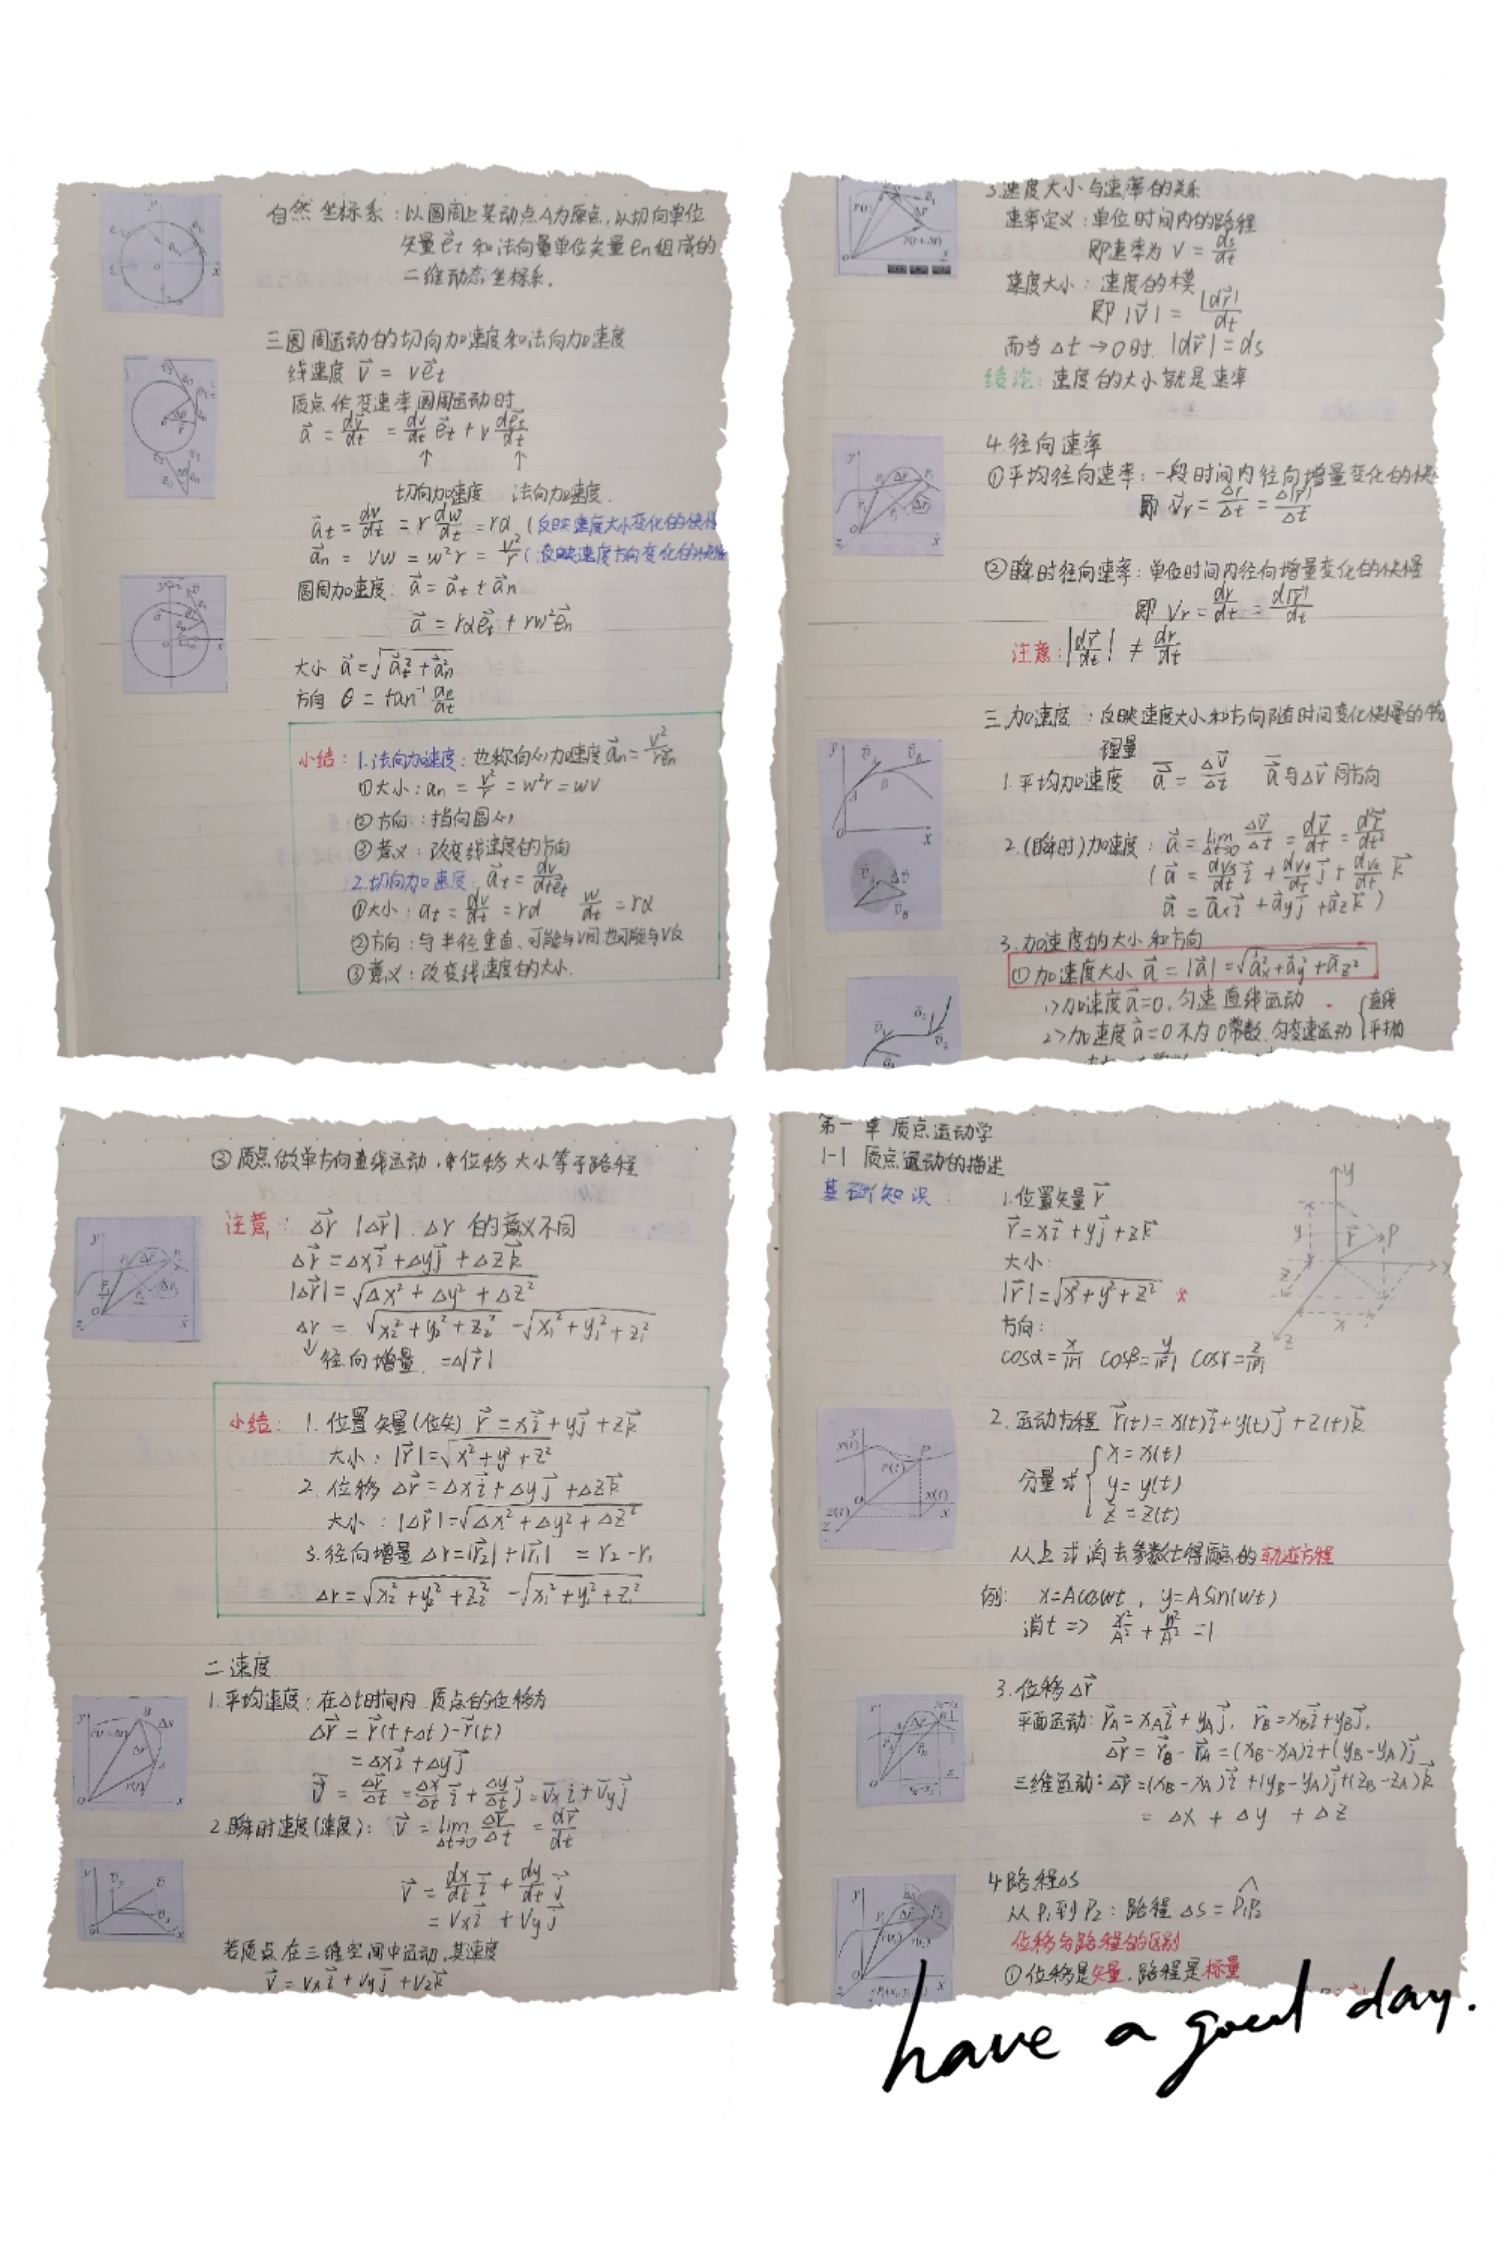 自然坐标系：以圆周上某动点A为原点，以切向单位
矢量e⃗t和法向量单位矢量en组成的
二维动态坐标系。
三圆周运动的切向加速度和法向加速度
线速度 v⃗ = ve⃗t
质点作变速率圆周运动时
a⃗ = dv⃗/dt = dv/dt e⃗t + v de⃗t/dt
↑ ↑
切向加速度 法向加速度.
a⃗t = dv/dt = r dw/dt = rα (反映速度大小变化的快慢
a⃗n = vw = w²r = v²/r (反映速度方向变化的快慢
圆周加速度: a⃗ = a⃗t + a⃗n
a⃗ = rαe⃗t + rw²e⃗n
大小 a⃗ = √(a⃗t² + a⃗n²)
方向 θ = tan⁻¹ an/at
小结: 1.法向加速度: 也称向心加速度 a⃗n = v²/re⃗n
①大小: an = v²/r = w²r = wv
②方向: 指向圆心
③意义: 改变线速度的方向
2.切向加速度: a⃗t = dv/dte⃗t
①大小: at = dv/dt = rα w/dt = rα
②方向: 与半径垂直、可能与V同也可能与V反
③意义: 改变线速度的大小.
3.速度大小与速率的关系
速率定义: 单位时间内的路程
即速率为 v = ds/dt
速度大小: 速度的模
即 |v⃗| = |dr⃗|/dt
而当 Δt→0时. |dr⃗| = ds
结论: 速度的大小就是速率
4.径向速率
①平均径向速率: 一段时间内径向增量变化的快
即 v̄r = Δr/Δt = Δ|r⃗|/Δt
②瞬时径向速率: 单位时间内径向增量变化的快慢
即 Vr = dr/dt = d|r⃗|/dt
注意: |dr⃗/dt| ≠ dr/dt
三.加速度: 反映速度大小和方向随时间变化快慢的物
理量
1.平均加速度 a⃗ = Δv⃗/Δt a⃗与Δv⃗同方向
2.(瞬时)加速度: a⃗ = lim Δt→0 Δv⃗/Δt = dv⃗/dt = d²r⃗/dt²
(a⃗ = dvx/dt i⃗ + dvy/dt j⃗ + dvz/dt k⃗
a⃗ = a⃗xi⃗ + a⃗yj⃗ + a⃗zk⃗)
3.加速度的大小和方向
①加速度大小 a⃗ = |a⃗| = √(a⃗x² + a⃗y² + a⃗z²)
1>加速度a⃗=0, 匀速直线运动. {直线
2>加速度a⃗=0不为0常数. 匀变速运动 平抛
③质点做单方向直线运动, 位移大小等于路程
注意: Δr⃗ |Δr⃗|. Δr 的意义不同
Δr⃗ = Δxi⃗ + Δyj⃗ + Δzk⃗
|Δr⃗| = √(Δx² + Δy² + Δz²)
Δr = √(x₂² + y₂² + z₂²) - √(x₁² + y₁² + z₁²)
↓径向增量. = Δ|r⃗|
小结: 1.位置矢量(位矢) r⃗ = xi⃗ + yj⃗ + zk⃗
大小: |r⃗| = √(x² + y² + z²)
2.位移 Δr⃗ = Δxi⃗ + Δyj⃗ + Δzk⃗
大小: |Δr⃗| = √(Δx² + Δy² + Δz²)
3.径向增量 Δr = |r⃗₂| + |r⃗₁| = r₂ - r₁
Δr = √(x₂² + y₂² + z₂²) - √(x₁² + y₁² + z₁²)
二 速度
1.平均速度: 在Δt时间内.质点的位移为
Δr⃗ = r⃗(t+Δt) - r⃗(t)
= Δxi⃗ + Δyj⃗
v⃗ = Δr⃗/Δt = Δx/Δt i⃗ + Δy/Δt j⃗ = v̄xi + v̄yj⃗
2.瞬时速度(速度): v⃗ = lim Δt→0 Δr⃗/Δt = dr⃗/dt
v⃗ = dx/dt i⃗ + dy/dt j⃗
= vxi⃗ + vyj⃗
若质点在三维空间中运动.其速度
v⃗ = vxi⃗ + vyj⃗ + vzk⃗
第一章 质点运动学
1-1 质点运动的描述
基础知识:
1.位置矢量 r⃗
r⃗ = xi⃗ + yj⃗ + zk⃗
大小:
|r⃗| = √(x² + y² + z²)
方向:
cosα = x/|r⃗| cosβ = y/|r⃗| cosγ = z/|r⃗|
2.运动方程 r⃗(t) = x(t)i⃗ + y(t)j⃗ + z(t)k⃗
分量式 { x = x(t)
y = y(t)
z = z(t)
从上式消去参数t得质点的轨迹方程
例: x=Acoswt, y=Asin(wt)
消t => x²/A² + y²/A² = 1
3.位移Δr⃗
平面运动: r⃗A = xAi⃗ + yAj⃗, r⃗B = xBi⃗ + yBj⃗,
Δr⃗ = r⃗B - r⃗A = (xB-xA)i + (yB-yA)j⃗
三维运动: Δr⃗ = (xB-xA)i⃗ + (yB-yA)j⃗ + (zB-zA)k⃗
= Δx + Δy + Δz
4.路程Δs
从P₁到P₂: 路程 Δs = P₁P₂
位移与路程的区别
①位移是矢量, 路程是标量
have a good day.